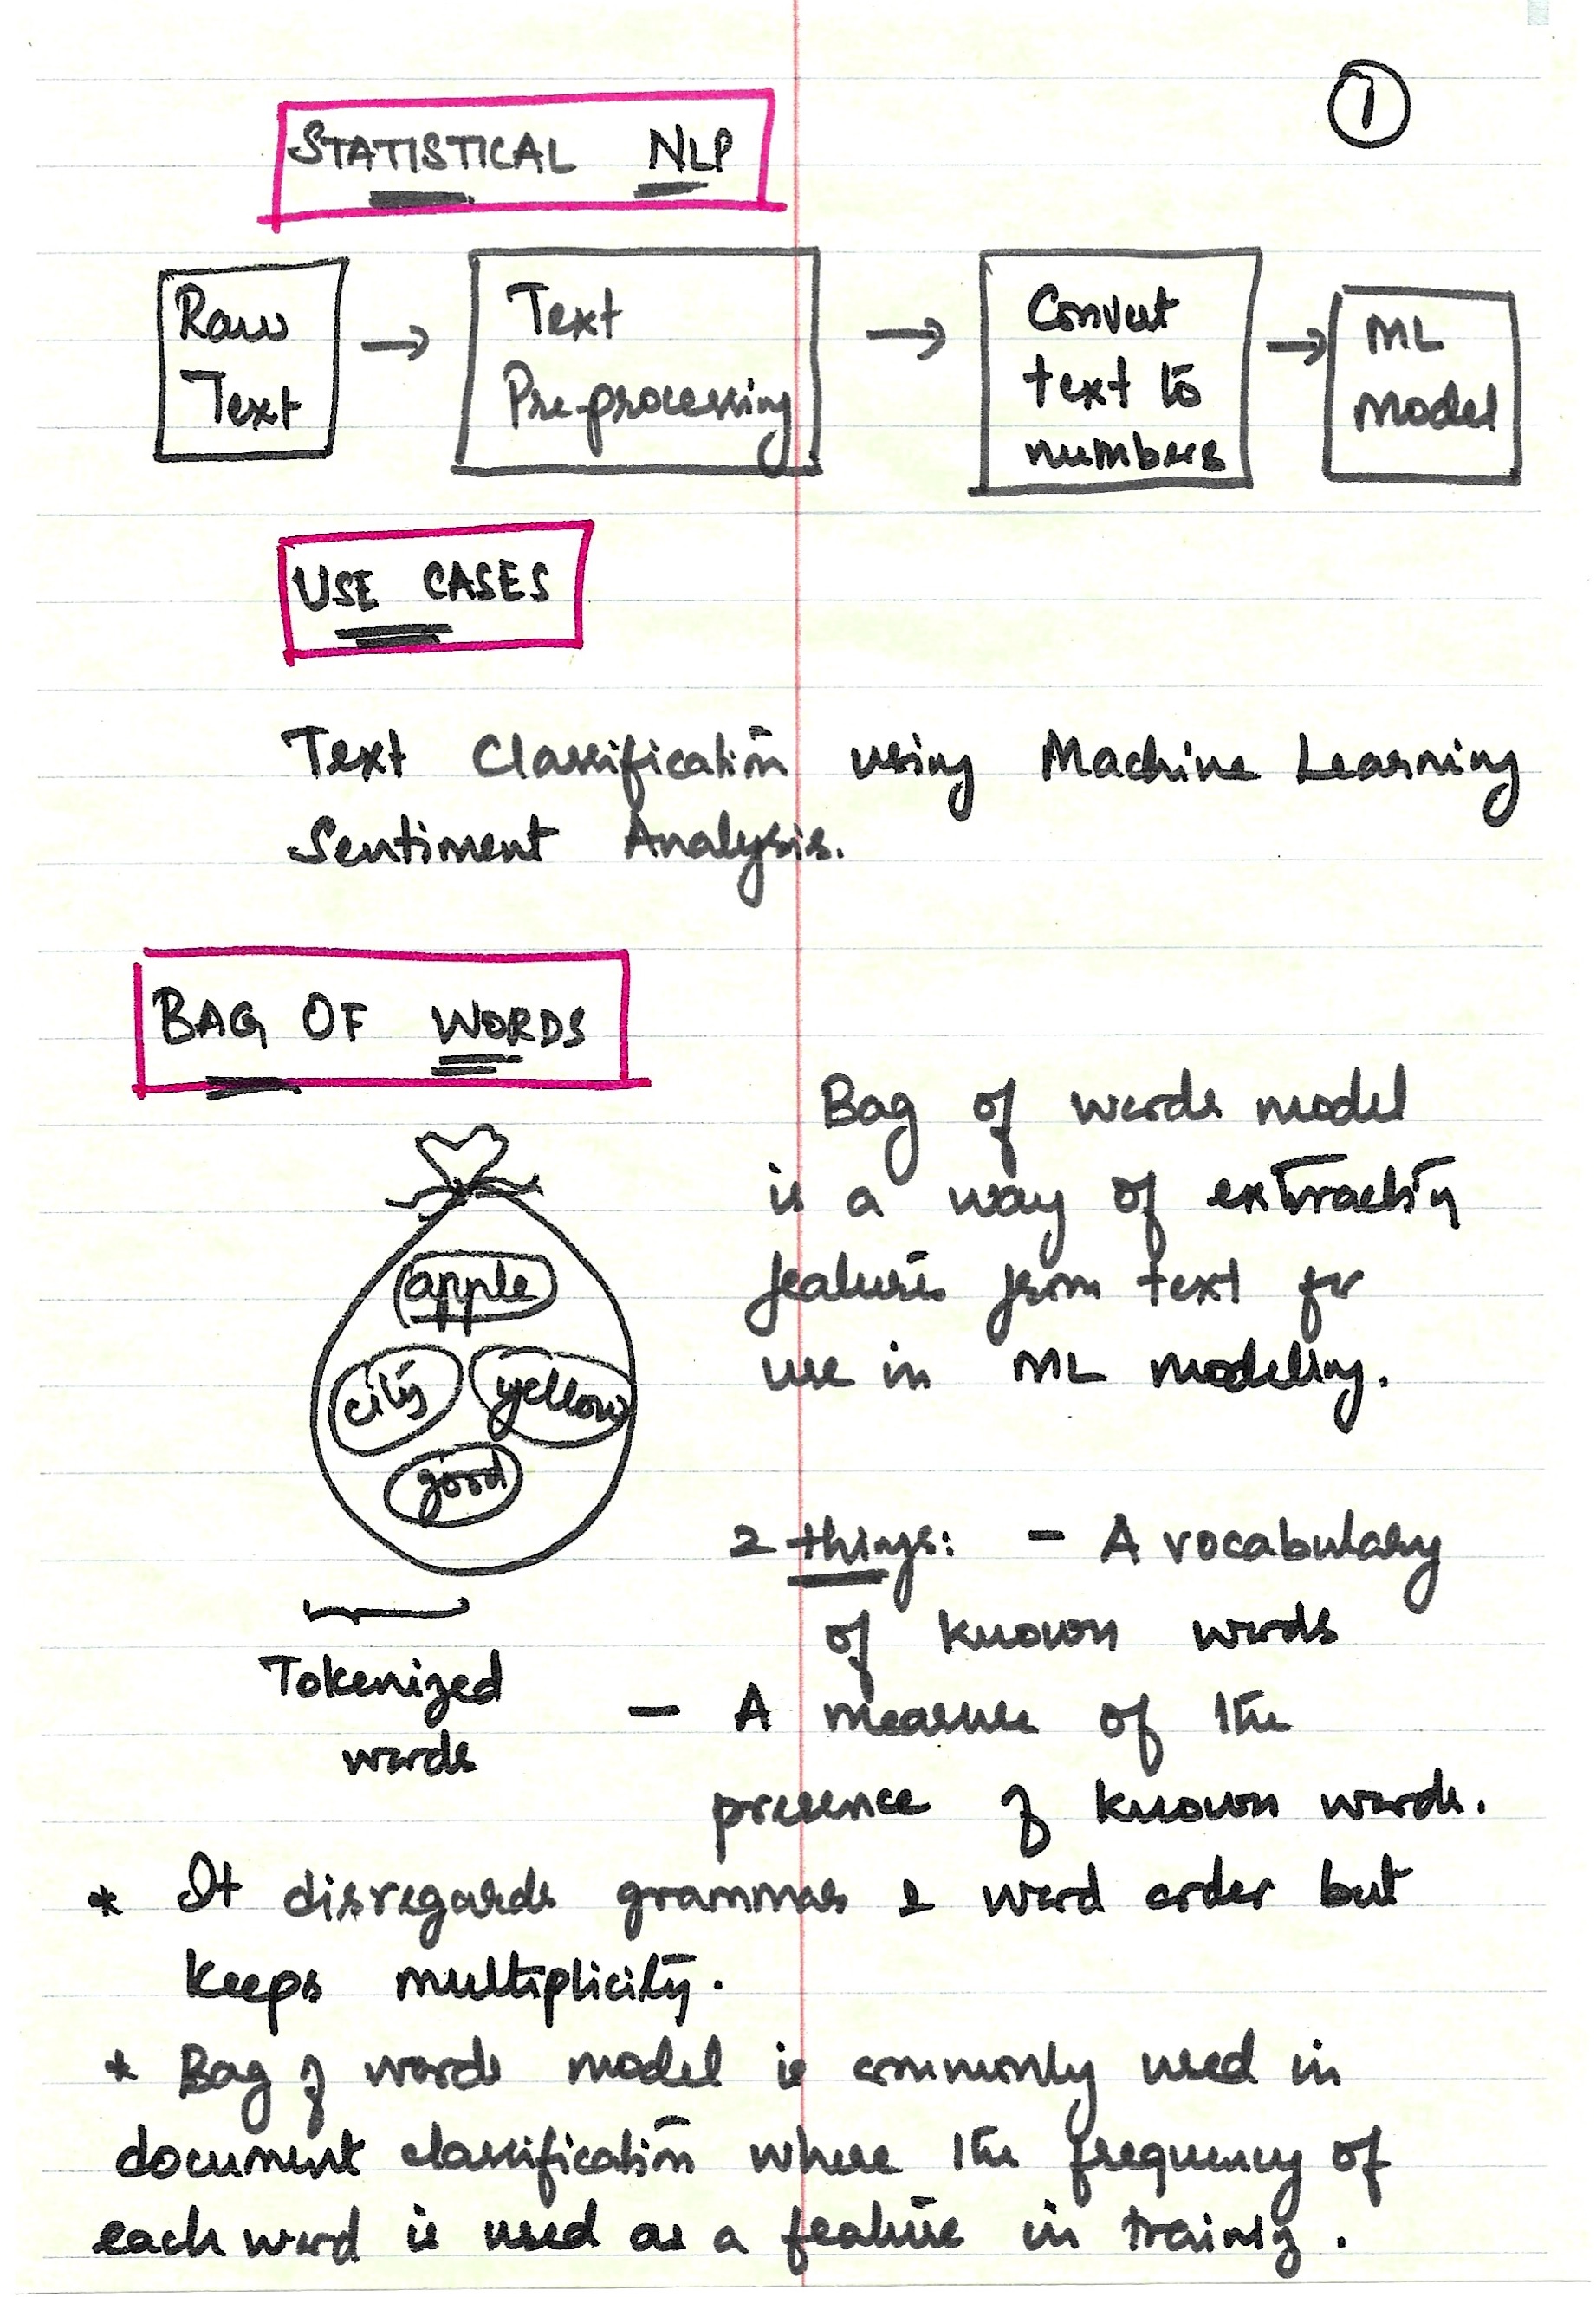 1
STATISTICAL NLP
Raw Text
Text Pre-processing
Convert text to numbers
ML Model
USE CASES
Text Classification using Machine Learning
Sentiment Analysis.
BAG OF WORDS
Bag of words model
is a way of extracting
features from text for
use in ML modeling.
apple
city yellow
good
Tokenized
words
2 things: - A vocabulary
of known words
- A measure of the
presence of known words.
* It disregards grammar & word order but
keeps multiplicity.
* Bag of words model is commonly used in
document classification where the frequency of
each word is used as a feature in training.